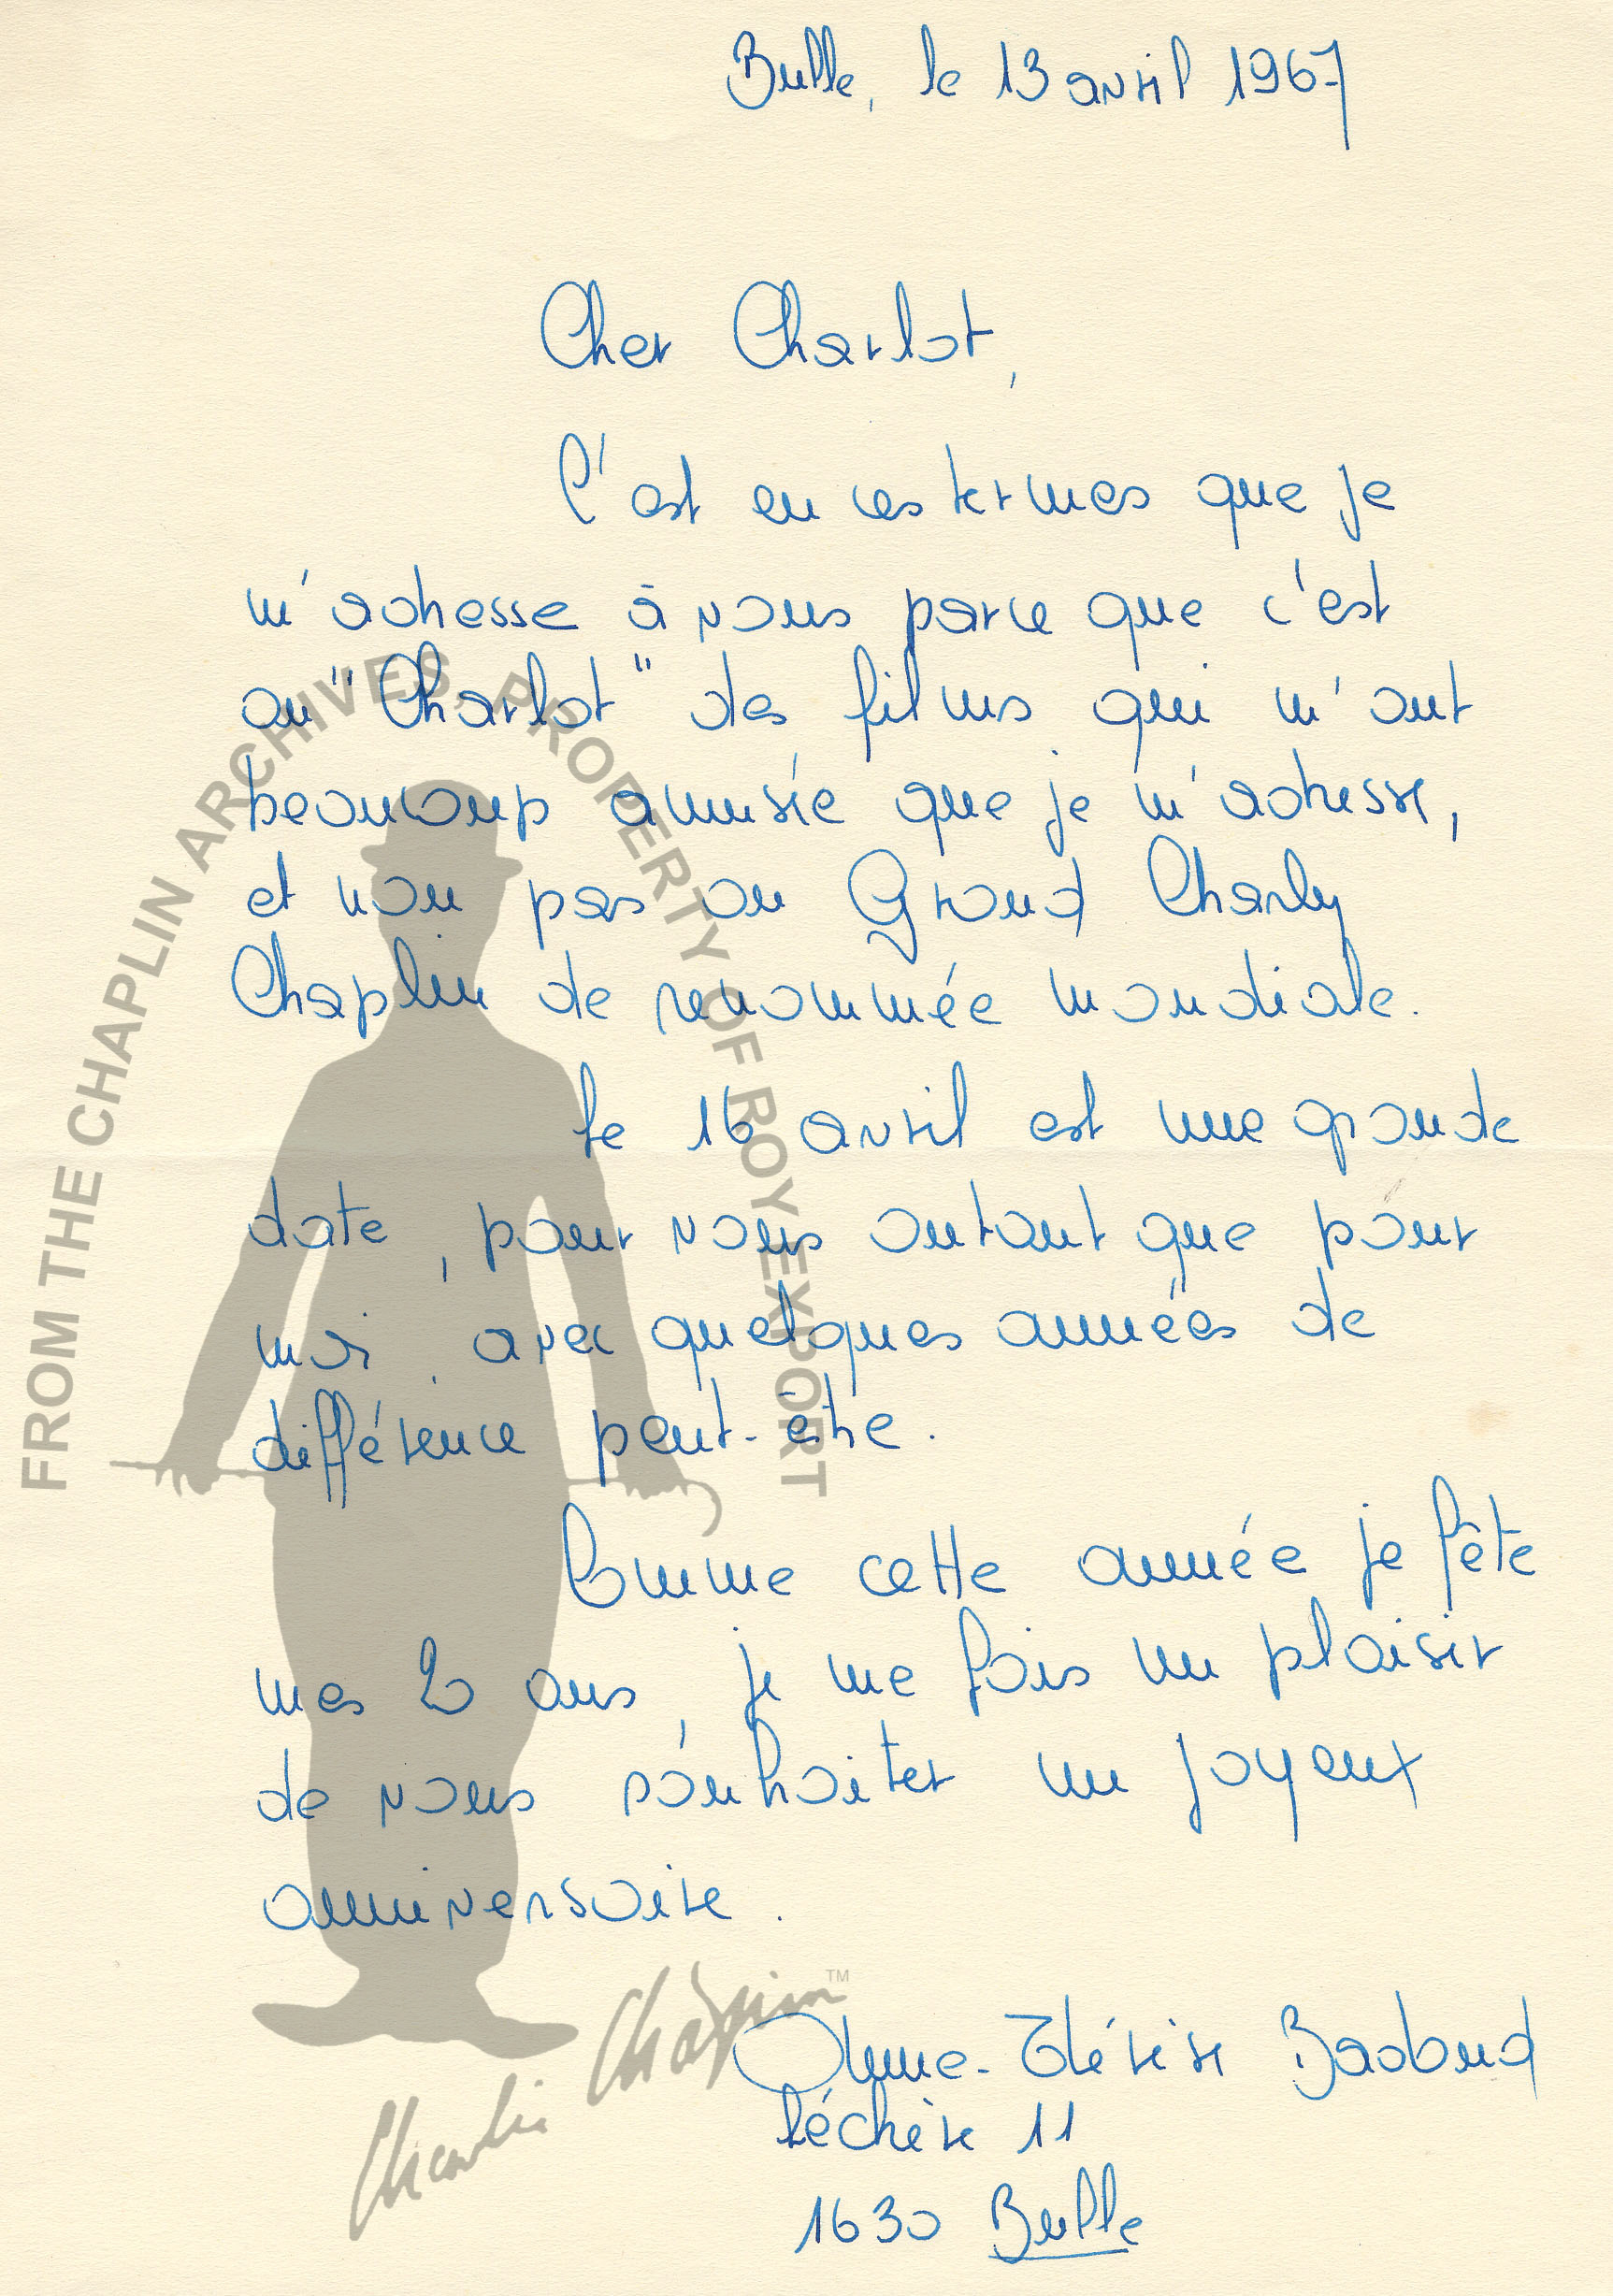 Bulle, le 13 avril 1967
Cher Charlot,
C'est en ces termes que je
m'adresse à vous parce que c'est
au "Charlot" des films qui m'ont
beaucoup amusée que je m'adresse,
et non pas au Grand Charly
Chaplin de renommée mondiale.
Le 16 avril est une grande
date, pour vous autant que pour
moi, avec quelques années de
différence peut-être.
Comme cette année je fête
mes 20 ans, je me fais un plaisir
de vous souhaiter un joyeux
anniversaire.
Anne-Thérèse
Léchère 11
1630 Bulle
FROM THE CHAPLIN ARCHIVES, PROPERTY OF ROY EXPORT
Charlie Chaplin™